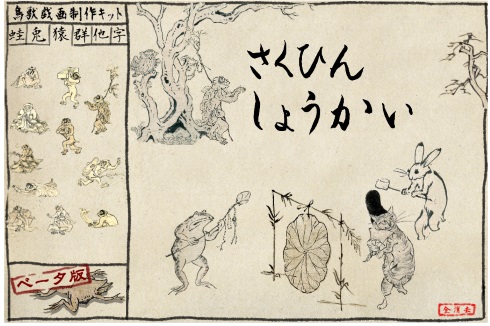 鳥獣戯画制作キット
蛙 兎 猿 群 他 字
さくひん
しょうかい
ベータ版
全消去